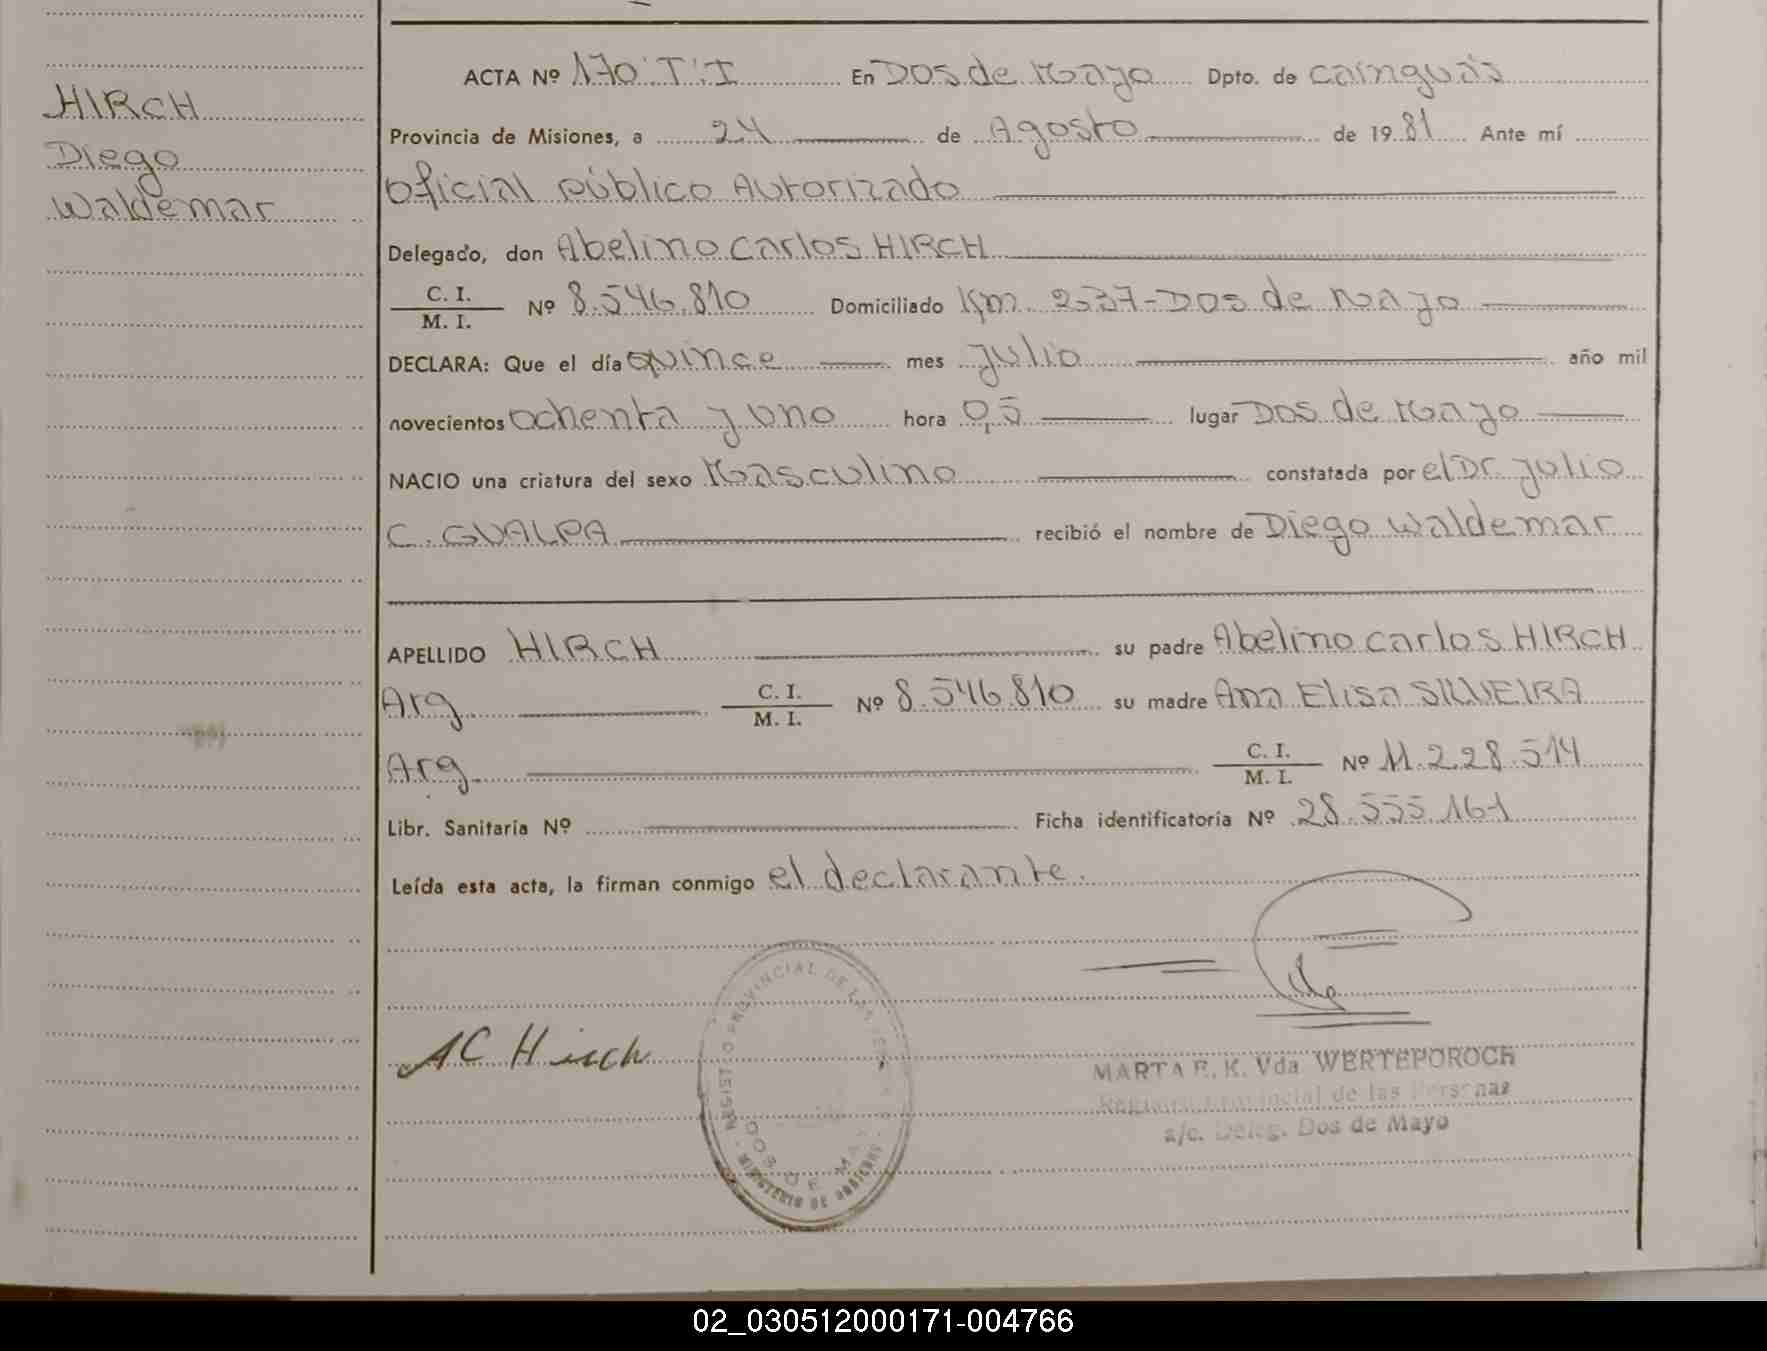 HIRCH
Diego
Waldemar
ACTA Nº 170 "T" I En Dos de Mayo Dpto. de Cainguás
Provincia de Misiones, a 24 de Agosto de 1981 Ante mí
Oficial Público Autorizado
Delegado, don Abelino Carlos HIRCH
C. I.
M. I. Nº 8.546.810 Domiciliado Km. 237-Dos de Mayo
DECLARA: Que el día quince mes julio año mil
novecientos ochenta y uno hora 0,5 lugar Dos de Mayo
NACIO una criatura del sexo Masculino constatada por el Dr. Julio
C. GUALPA recibió el nombre de Diego Waldemar
APELLIDO HIRCH su padre Abelino Carlos HIRCH
Arg C. I. M. I. Nº 8.546.810 su madre Ana Elisa SILVEIRA
Arg. C. I. M. I. Nº 11.228.514
Libr. Sanitaria Nº Ficha identificatoria Nº 28.555.161
Leída esta acta, la firman conmigo el declarante.
AC Hirch
REGISTRO PROVINCIAL DE LAS
DOS DE MAYO
MINISTERIO DE GOBIERNO
MARTA E. K. Vda WERTEPOROCH
Registro Provincial de las Personas
a/c. Deleg. Dos de Mayo
02_030512000171-004766